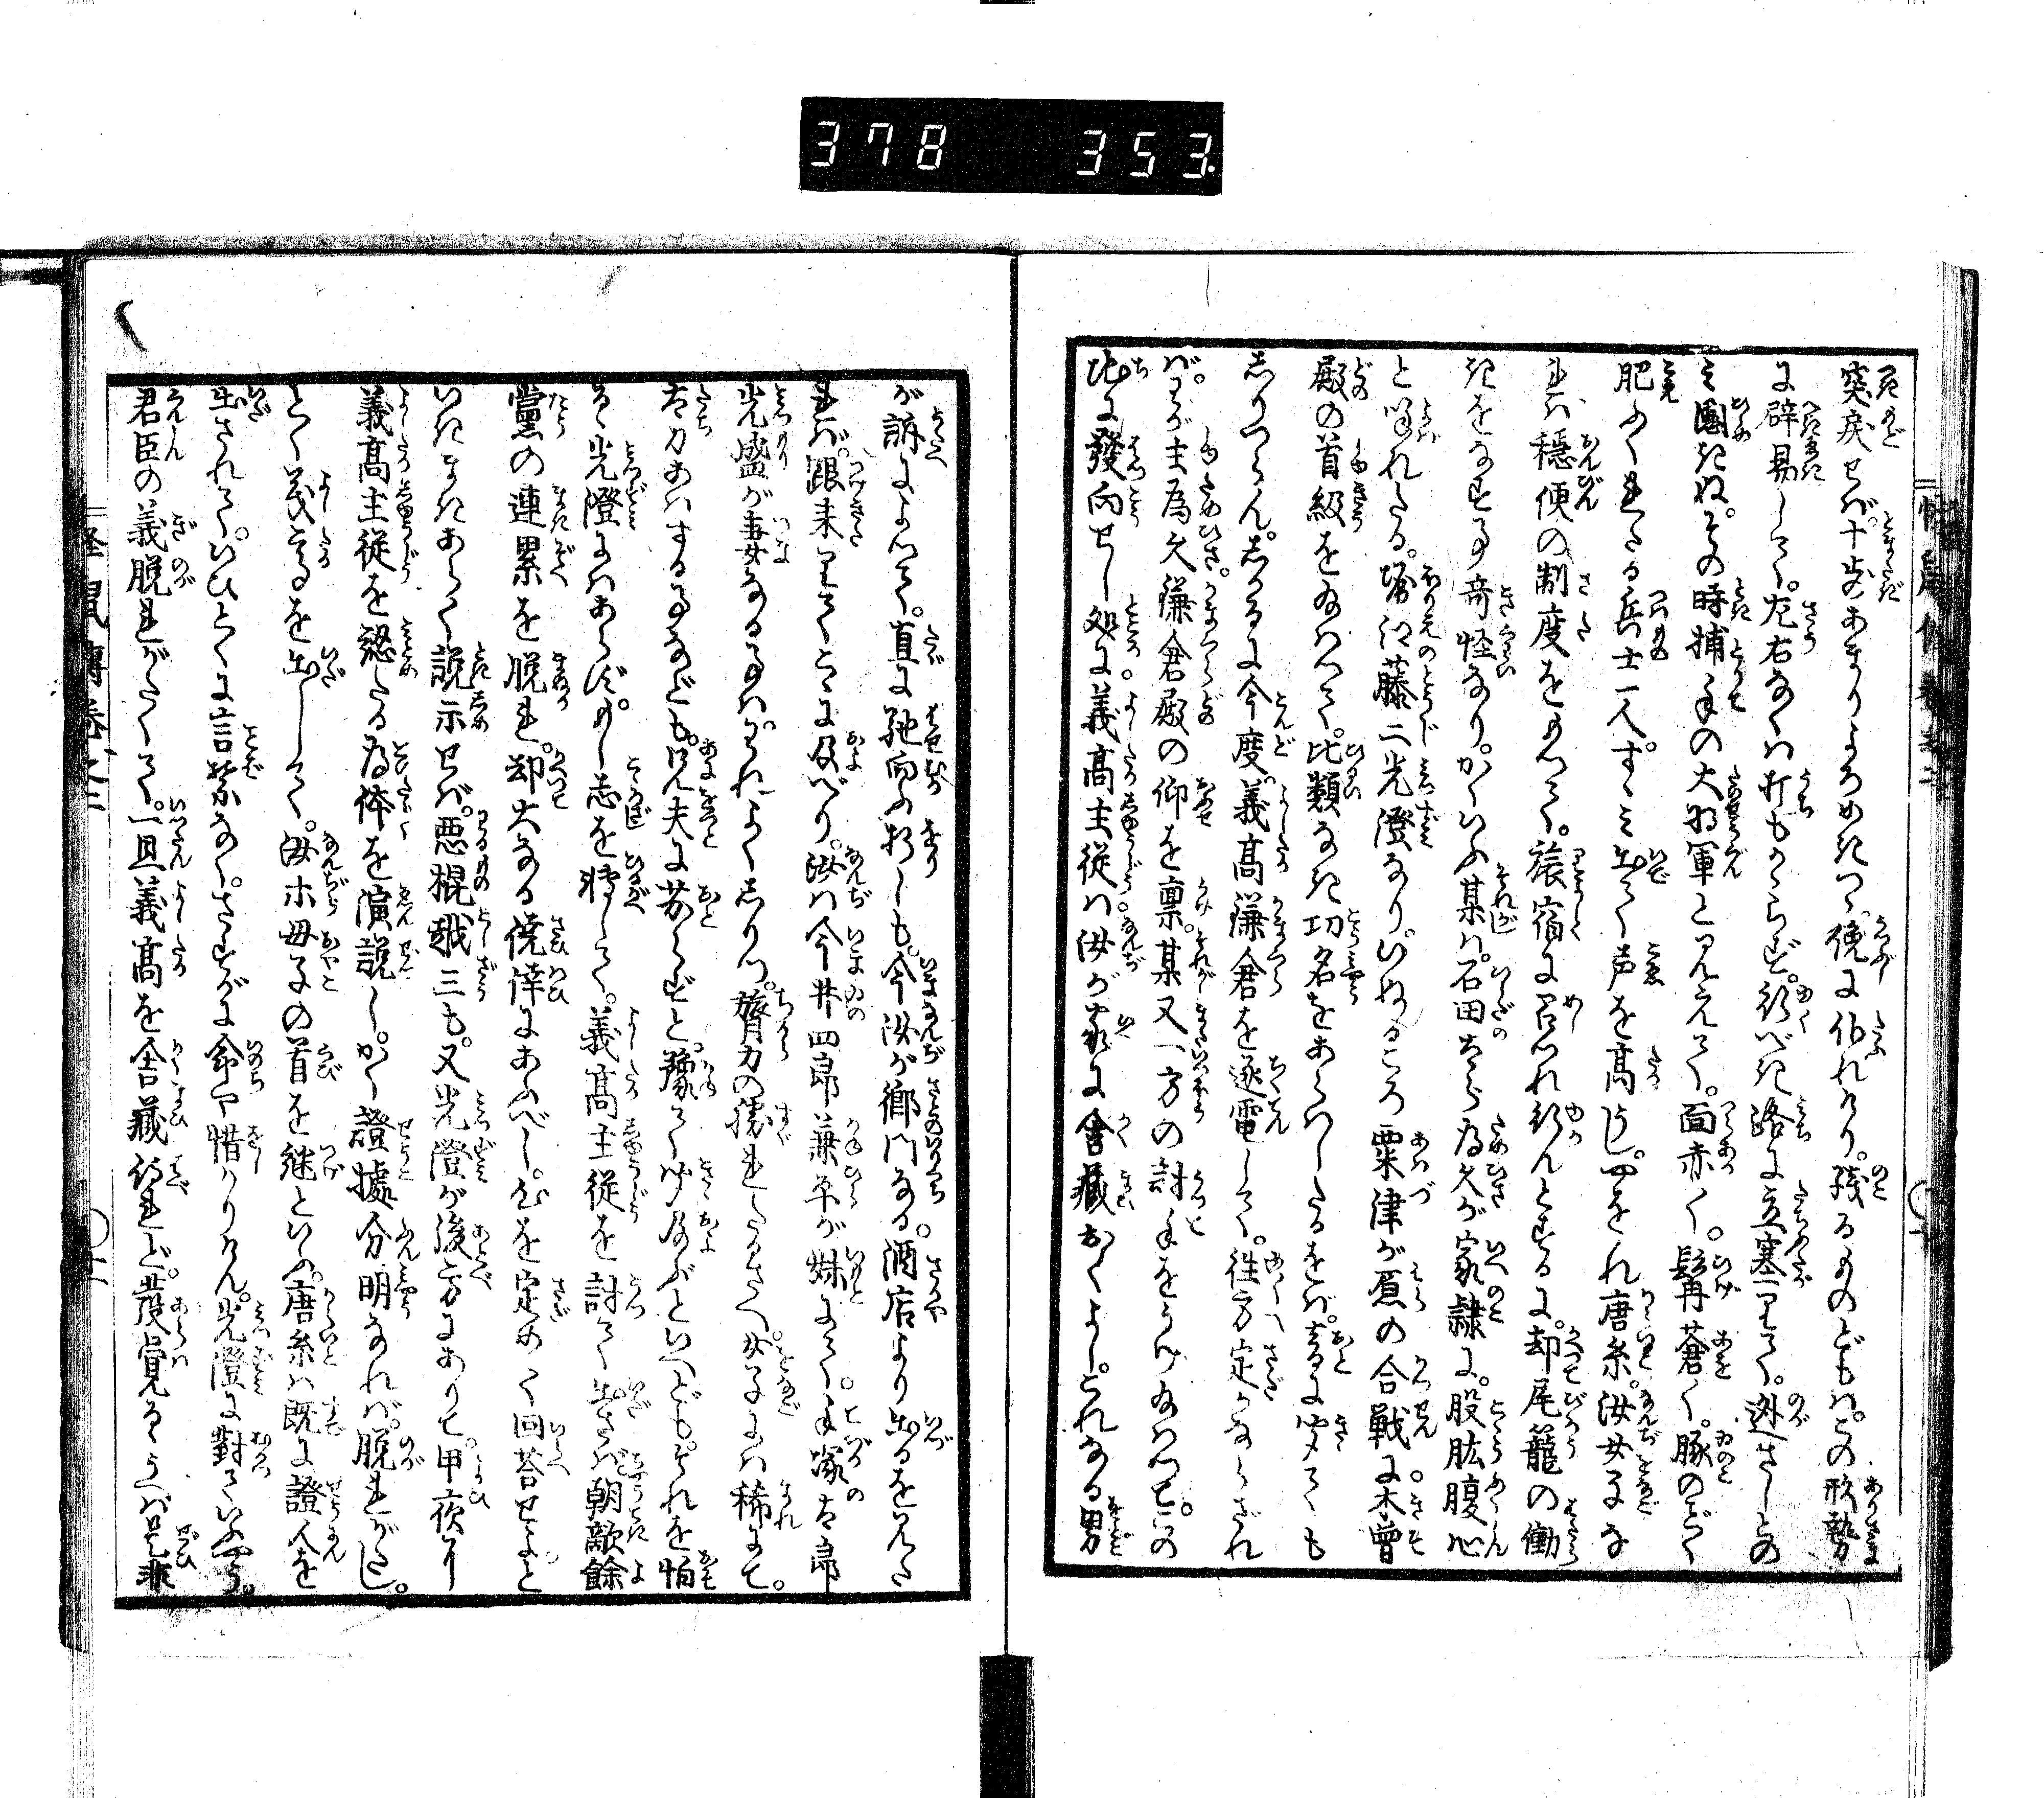 378 353.
突戻せば十歩あまりよろめきつゝ俛に仆れけり。残るものどもは。この形勢
に辟易して。左右なくは打もかゝらず。行べき路に立塞りて。迯さじとの
み圍きぬ。その時捕手の大将軍と見えて。面赤く。髯蒼く。豚のごとく
肥ふくれたる兵士一人。すゝみ出て声を高くし。やをれ唐糸。汝女子な
れば穏便の制度をもつて。旅宿に召れ行んとするに。却尾籠の働
きをなす事奇怪なり。かくいふ某は。石田太郎為久が家隷に。股肱腹心
と呼れたる。堀江藤二光澄なり。いぬるころ粟津が原の合戦に。木曽
殿の首級を給はつて。比類なき功名をあらはしたるをば。音に聞ても
しりつらん。しかるに今度義髙鎌倉を逐電して。往方定かならざれ
ば。わが主為久鎌倉殿の仰を稟。某又一方の討手をうけ給はつて。この
地に發向せし処に。義髙主従は。汝が家に舎藏おくよし。これなる男
が訴によつて。直に馳向ふ折しも。今汝が郷門なる。酒店より出るを見た
れば。跟来りてこゝに及べり。汝は今井四郎兼平が妹にて。手塚太郎
光盛が妻なる事は。われよくしりつ。膂力の勝れしたるさへ。女子には稀にて。
太刀あはする事なども。兄夫に劣らずと。豫て聞及ぶといへども。それを怕
るゝ光澄にはあらず。もし志を轉して。義髙主従を討て出さば。朝敵餘
黨の連累を脱れ。却大なる僥倖にあふべし。心を定めて回荅せよと
いきまきあらく説示せば。悪棍越三も。又光澄が後方にありて。甲夜より
義髙主従を𥄢たる為体を演説し。かく證據分明なれば。脱れがたし。
とく〱義髙を出して。汝ホ母子の首を継といふ。唐糸は既に證人を
出されて。いひとくに言葉なく。さすがに命や惜かりけん。光澄に對ていふやう。
君臣の義脱れがたくて。一旦義髙を舎藏侍れど。發覚るうへは是非
怪鼠傳巻之二